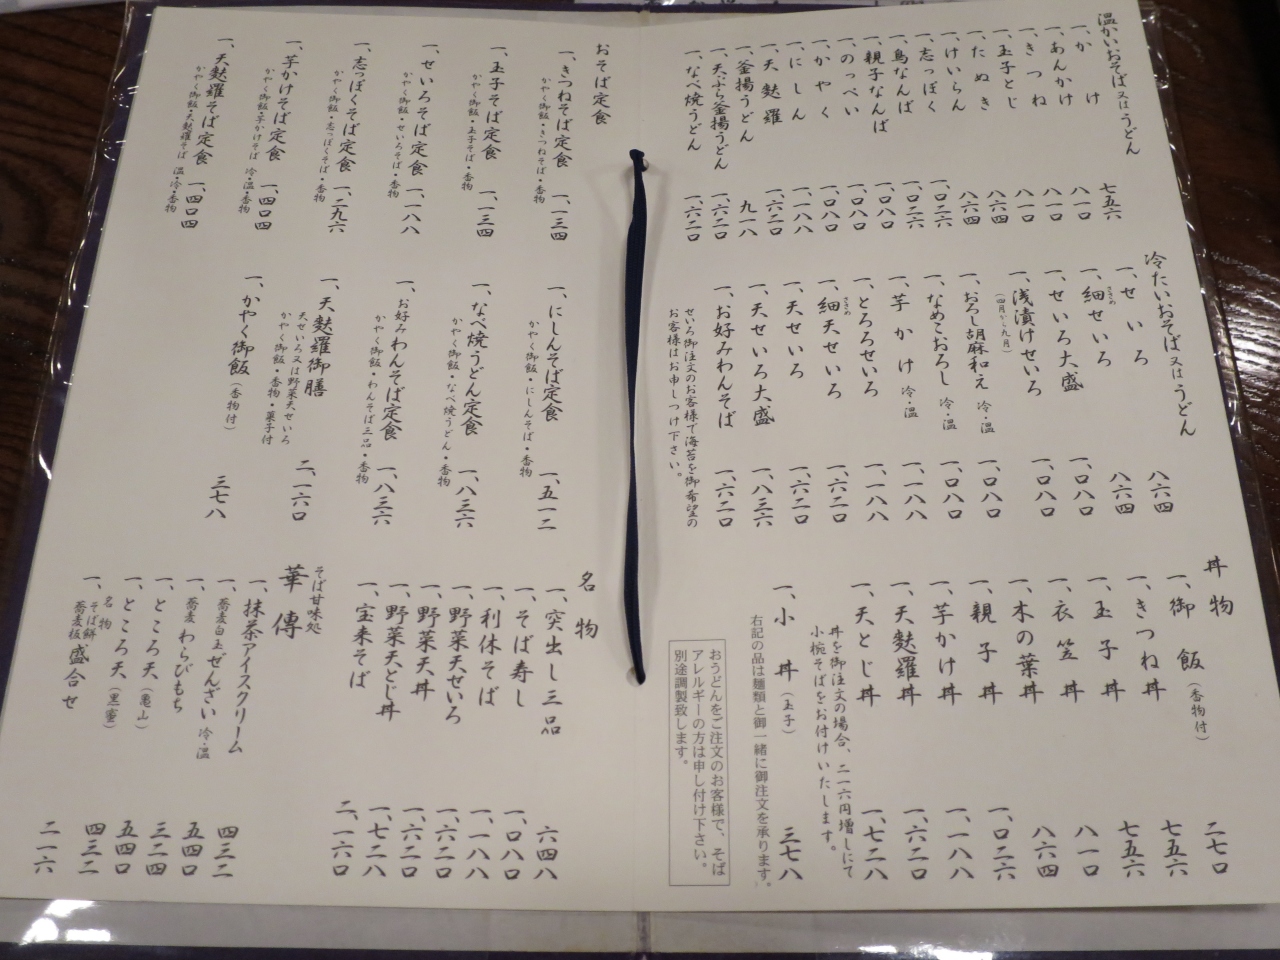 温かいおそば又はうどん
一、かけ 七五六
一、あんかけ 八一〇
一、きつね 八一〇
一、玉子とじ 八一〇
一、たぬき 八六四
一、けいらん 八六四
一、志っぽく 一、〇二六
一、鳥なんば 一、〇二六
一、親子なんば 一、〇八〇
一、のっぺい 一、〇八〇
一、かやく 一、〇八〇
一、にしん 一、一八八
一、天麩羅 一、六二〇
一、釜揚うどん 九一八
一、天ぷら釜揚うどん 一、六二〇
一、なべ焼うどん 一、六二〇
冷たいおそば又はうどん
一、せいろ 八六四
一、細せいろ 八六四
一、せいろ大盛 一、〇八〇
一、浅漬けせいろ 一、〇八〇
(四月から九月)
一、おろし胡麻和え 冷・温 一、〇八〇
一、なめこおろし 冷・温 一、〇八〇
一、芋かけ 冷・温 一、一八八
一、とろろせいろ 一、一八八
一、細天せいろ 一、六二〇
一、天せいろ 一、六二〇
一、天せいろ大盛 一、八三六
一、お好みわんそば 一、六二〇
せいろ御注文のお客様で海苔を御希望の
お客様はお申しつけ下さい。
丼物
一、御飯(香物付) 二七〇
一、きつね丼 七五六
一、玉子丼 七五六
一、衣笠丼 八一〇
一、木の葉丼 八六四
一、親子丼 一、〇二六
一、芋かけ丼 一、一八八
一、天麩羅丼 一、六二〇
一、天とじ丼 一、七二八
丼を御注文の場合、二一六円増しにて
小椀そばをお付けいたします。
一、小丼(玉子) 三七八
右記の品は麺類と御一緒に御注文を承ります。
おうどんをご注文のお客様で、そば
アレルギーの方は申し付け下さい。
別途調製致します。
おそば定食
一、きつねそば定食 一、一三四
かやく御飯・きつねそば・香物
一、玉子そば定食 一、一三四
かやく御飯・玉子そば・香物
一、せいろそば定食 一、一八八
かやく御飯・せいろそば・香物
一、志っぽくそば定食 一、二九六
かやく御飯・志っぽくそば・香物
一、芋かけそば定食 一、四〇四
かやく御飯・芋かけそば 冷・温・香物
一、天麩羅そば定食 一、四〇四
かやく御飯・天麩羅そば 温・冷・香物
一、にしんそば定食 一、五一二
かやく御飯・にしんそば・香物
一、なべ焼うどん定食 一、八三六
かやく御飯・なべ焼うどん・香物
一、お好みわんそば定食 一、八三六
かやく御飯・わんそば三品・香物
一、天麩羅御膳 二、一六〇
天せいろ又は野菜天せいろ
かやく御飯・香物・菓子付
一、かやく御飯(香物付) 三七八
名物
一、突出し三品 六四八
一、そば寿し 一、〇八〇
一、利休そば 一、一八八
一、野菜天せいろ 一、六二〇
一、野菜天丼 一、六二〇
一、野菜天とじ丼 一、七二八
一、宝来そば 二、一六〇
そば甘味処
華傳
一、抹茶アイスクリーム 四三二
一、蕎麦白玉ぜんざい 冷・温 五四〇
一、蕎麦わらびもち 三二四
一、ところ天(亀山) 五四〇
一、ところ天(黒蜜) 四三二
名物
一、そば餅 蕎麦板 盛合せ 二一六